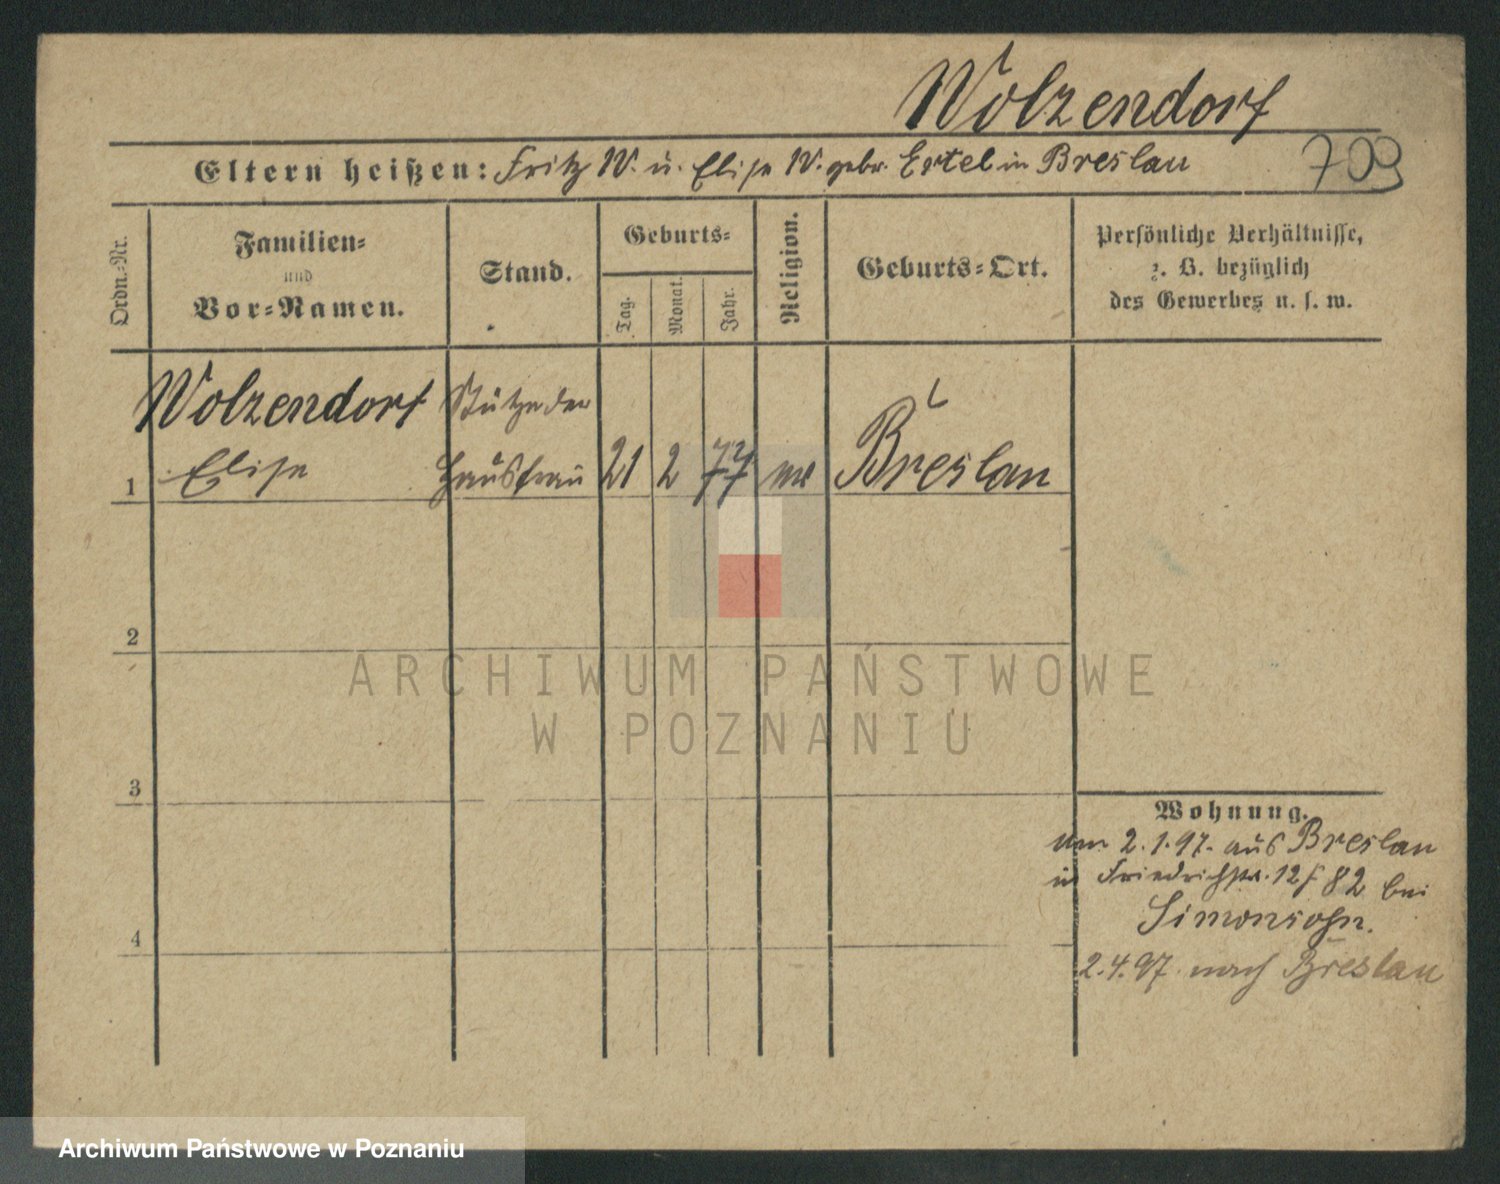 Wolzendorf
Eltern heißen: Fritz W. u. Elise W. gebr. Ertel in Breslau
709
Ordn.-Nr.
Familien-
und
Vor-Namen.
Stand.
Geburts-
Tag.
Monat.
Jahr.
Religion.
Geburts-Ort.
Persönliche Verhältnisse,
z. B. bezüglich
des Gewerbes u. s. w.
Wolzendorf Stütze der
1 Elise Hausfrau 21 2 77 Breslau
2
ARCHIWUM PAŃSTWOWE
W POZNANIU
3
Wohnung.
2.1.97. aus Breslau
in Friedrichstr. 12 / 82 bei
Simonsohn.
4
2.4.97 nach Breslau
Archiwum Państwowe w Poznaniu